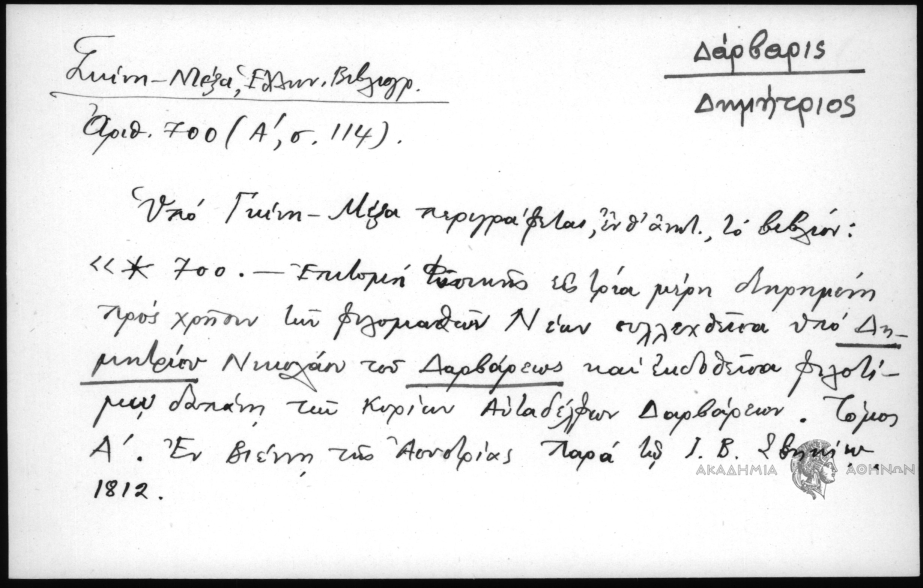 Γκίνη – Μέξα, Ἑλλην. Βιβλιογρ.
Δάρβαρις
Δημήτριος
Ἀριθ. 700 (Α΄, σ. 114).
Ὑπό Γκίνη – Μέξα περιγράφεται, ἐν θ' ἀνωτ., τό βιβλίον:
«✶ 700. – Ἐπιτομή Φυσικῆς εἰς τρία μέρη διῃρημένη
πρός χρῆσιν τῶν φιλομαθῶν Νέων συλλεχθεῖσα ὑπό Δη-
μητρίου Νικολάου τοῦ Δαρβάρεως καί ἐκδοθεῖσα φιλοτί-
μῳ δαπάνῃ τῶν Κυρίων Αὐταδέλφων Δαρβάρεων. Τόμος
Α΄. Ἐν Βιέννῃ τῆς Ἀουστρίας παρά τῷ Ι. Β. Σβηκίῳ,
1812.
ΑΚΑΔΗΜΙΑ ΑΘΗΝΩΝ